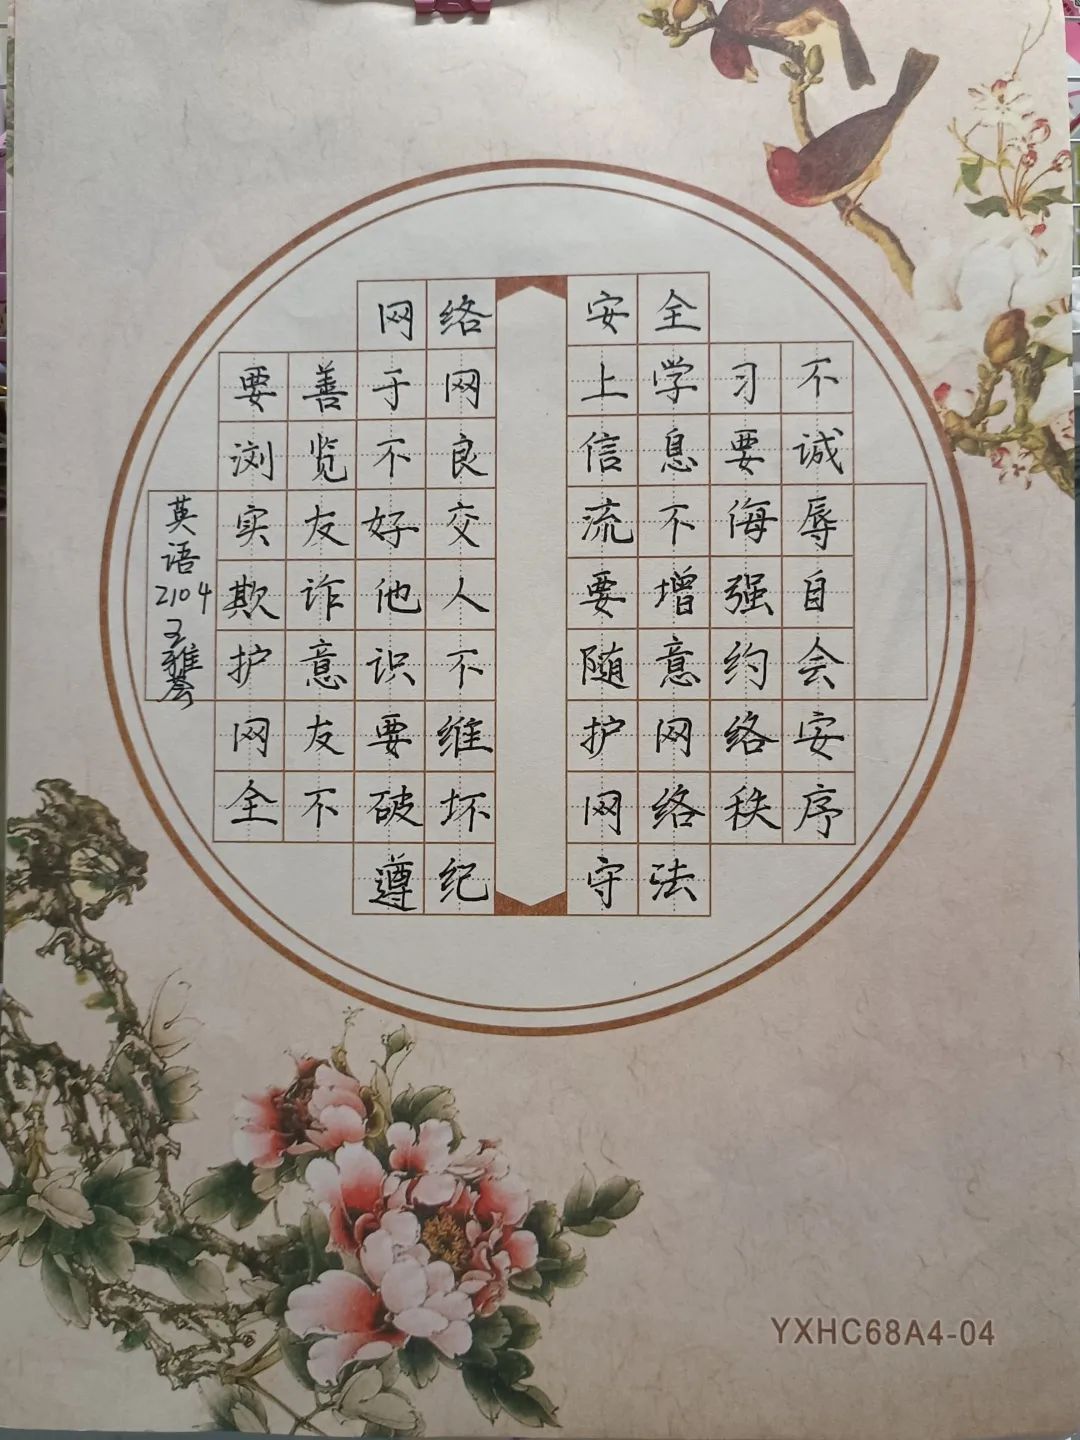 网络安全
要善于网上学习不
浏览不良信息要诚
实友好交流不侮辱
欺诈他人要增强自
护意识不随意约会
网友要维护网络安
全不破坏网络秩序
遵纪守法
英语
2104
王雅荟
YXHC68A4-04